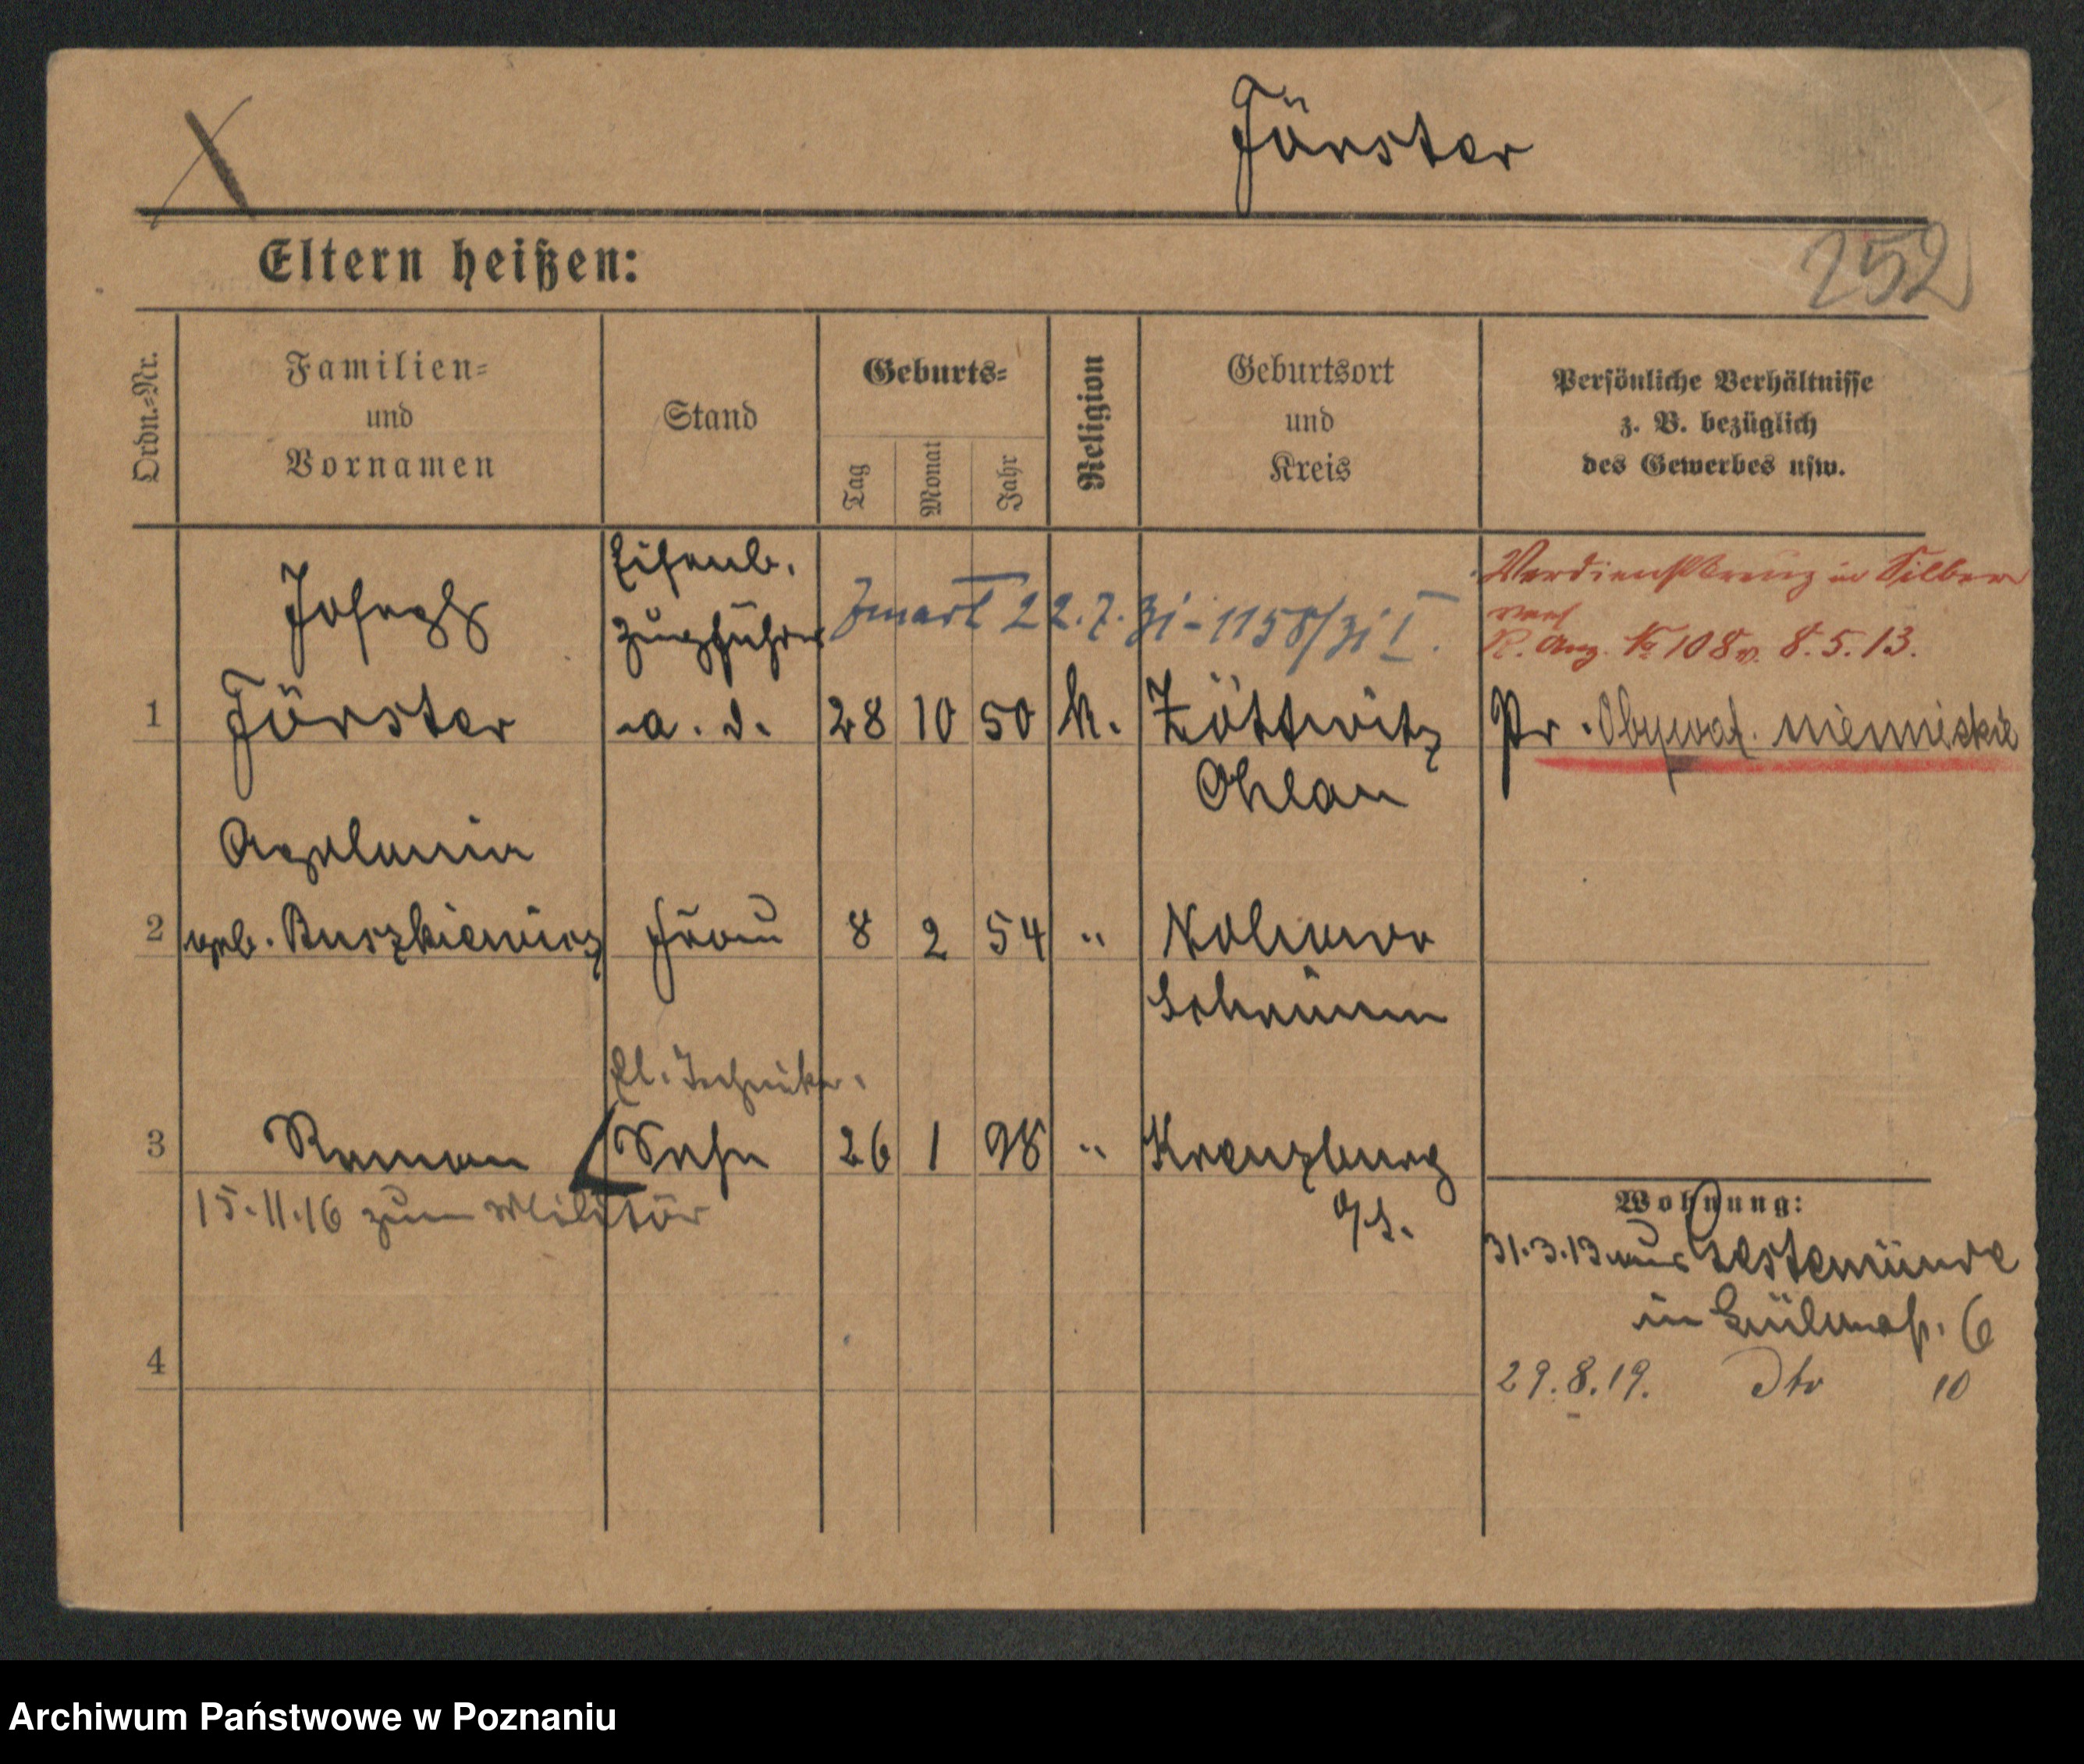 Förster
Eltern heißen:
252
Ordn.-Nr.
Familien-
und
Vornamen
Stand
Geburts-
Tag
Monat
Jahr
Religion
Geburtsort
und
Kreis
Persönliche Verhältnisse
z. B. bezüglich
des Gewerbes usw.
Joseph
Eisenb.
Zugführer
Zmarł 22.7.31 - 1158/31 I.
Verdienstkreuz in Silber
R. Anz. No 108 v. 8.5.13.
1 Förster a. D. 28 10 50 k. Zottwitz Pr. Obywat. niemieckie
Ohlau
2 geb. Buszkiewicz Frau 8 2 54 "
Schrimm
el. Techniker.
3 Roman Sohn 26 1 98 " Kreuzburg
15.11.16 zum Militär
O/S.
Wohnung:
31.3.13 aus Geestemünde
in 6
4
29.8.19. dto 10
Archiwum Państwowe w Poznaniu